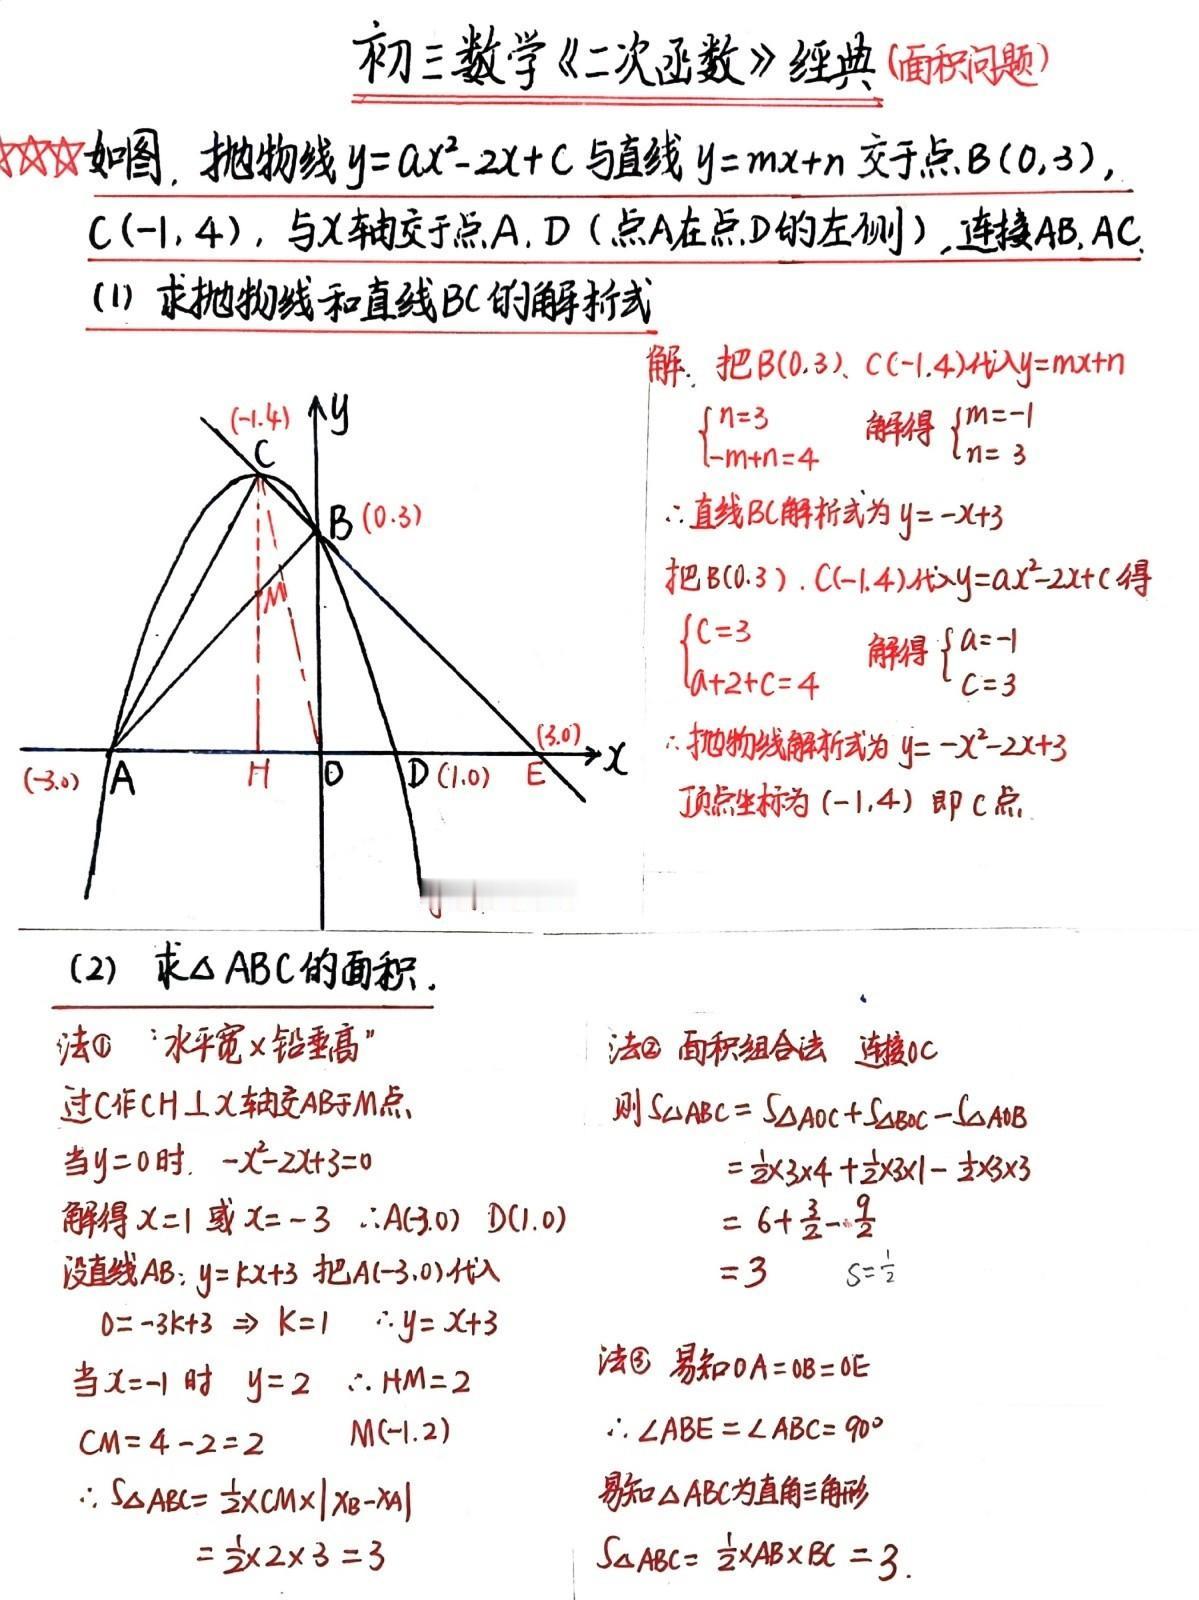 初三数学《二次函数》经典(面积问题)
☆☆☆如图, 抛物线 y=ax²-2x+C 与直线 y=mx+n 交于点B(0,3),
C(-1,4), 与X轴交于点A,D(点A在点D的左侧),连接AB,AC.
(1) 求抛物线和直线BC的解析式
解. 把B(0.3)、C(-1.4)代入y=mx+n
{n=3 解得 {m=-1
-m+n=4 n=3
∴直线BC解析式为 y=-x+3
把B(0.3). C(-1.4)代入y=ax²-2x+C得
{C=3 解得 {a=-1
a+2+C=4 C=3
∴抛物线解析式为 y=-x²-2x+3
顶点坐标为(-1,4) 即C点.
(-1.4)
y
C
B (0.3)
M
(3.0)
(-3.0) A H O D (1.0) E x
(2) 求△ABC的面积.
法① "水平宽×铅垂高"
过C作CH⊥X轴交AB于M点
当y=0时. -x²-2x+3=0
解得 x=1 或 x=-3 ∴A(-3.0) D(1.0)
设直线AB: y=kx+3 把A(-3.0)代入
0=-3k+3 ⇒ K=1 ∴y=x+3
当x=-1时 y=2 ∴HM=2
CM=4-2=2 M(-1.2)
∴S△ABC=½×CM×|xB-xA|
=½×2×3=3
法② 面积组合法 连接OC
则S△ABC=S△AOC+S△BOC-S△AOB
=½×3×4+½×3×1-½×3×3
=6+3/2-9/2
=3 S=½
法③ 易知OA=OB=OE
∴∠ABE=∠ABC=90°
易知△ABC为直角三角形
S△ABC=½×AB×BC=3.